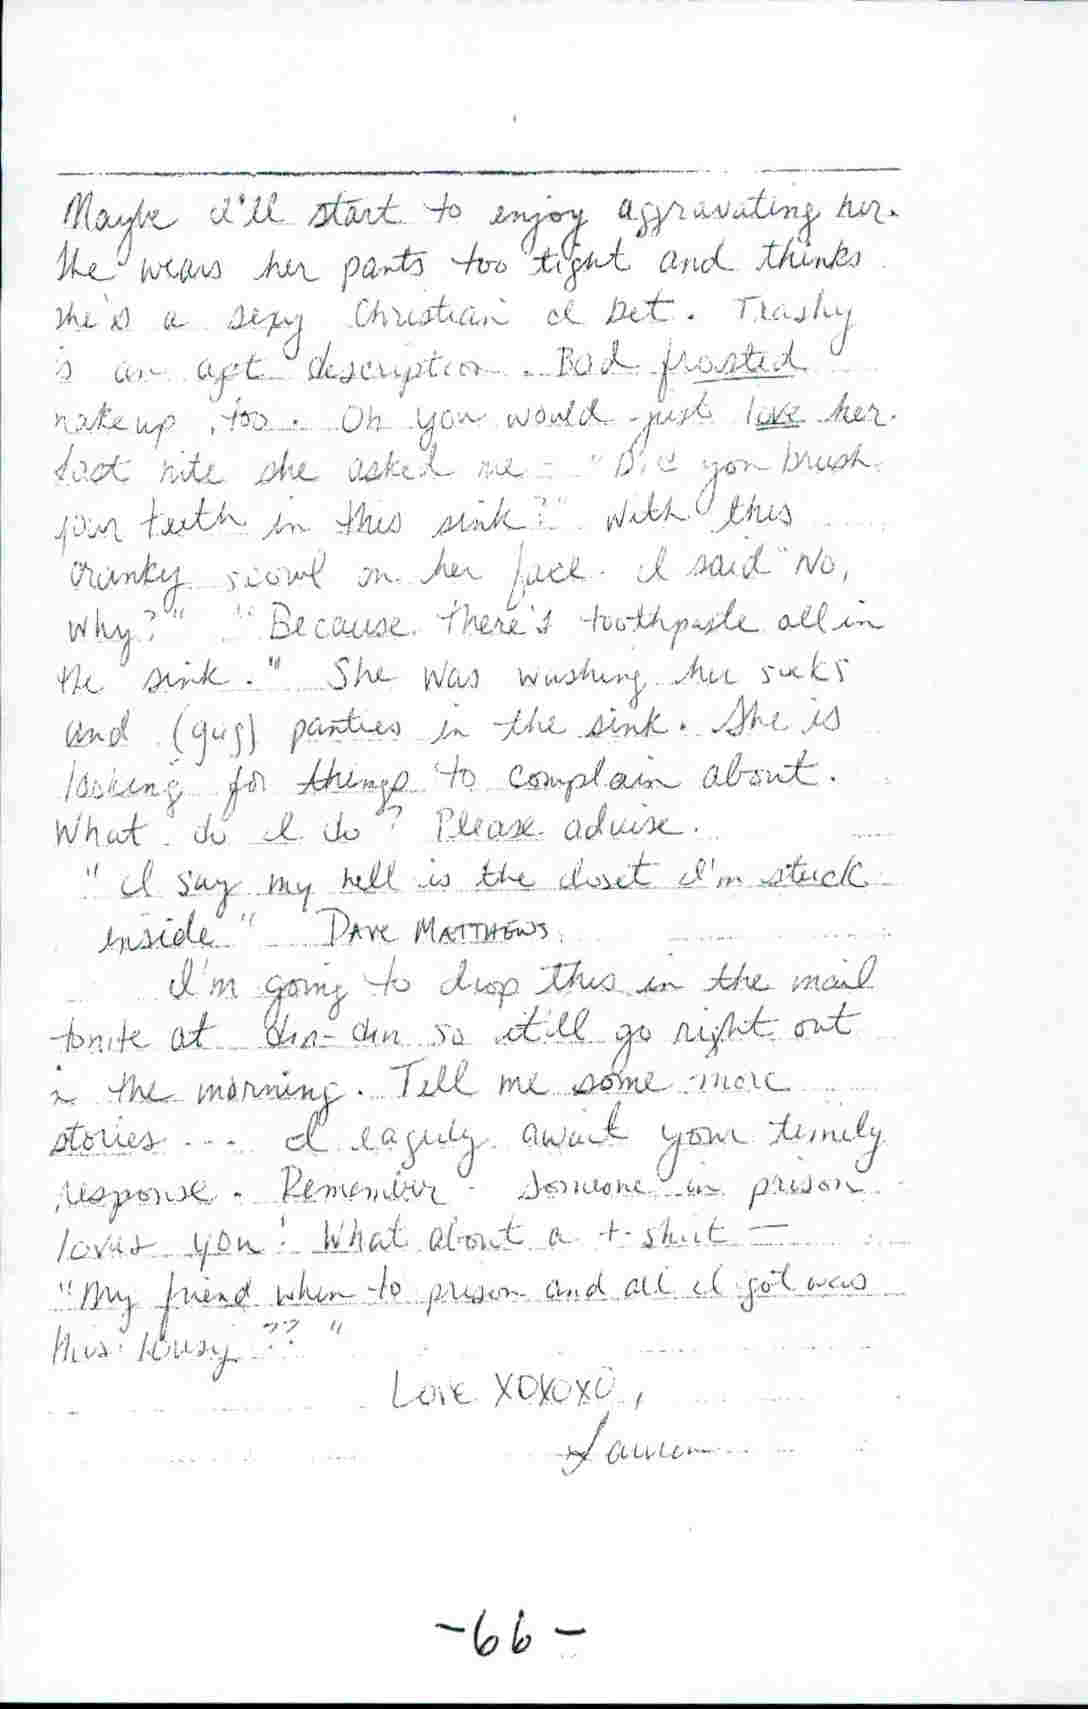 Maybe I'll start to enjoy aggravating her.
She wears her pants too tight and thinks
she's a sexy Christian I bet. Trashy
is an apt description. Bad frosted
makeup, too. Oh you would just love her.
Last nite she asked me - "Did you brush
your teeth in this sink?" With this
cranky scowl on her face. I said "No,
why?" "Because there's toothpaste all in
the sink." She was washing her socks
and (gag) panties in the sink. She is
looking for things to complain about.
What do I do? Please advise.
"I say my hell is the closet I'm stuck
inside" DAVE MATTHEWS.
I'm going to drop this in the mail
tonite at din-din so it'll go right out
in the morning. Tell me some more
stories ... I eagerly await your timely
response. Remember - someone in prison
loves you! What about a t-shirt —
"My friend when to prison and all I got was
this lousy ??"
Love XOXOXO,
Lauren
-66-